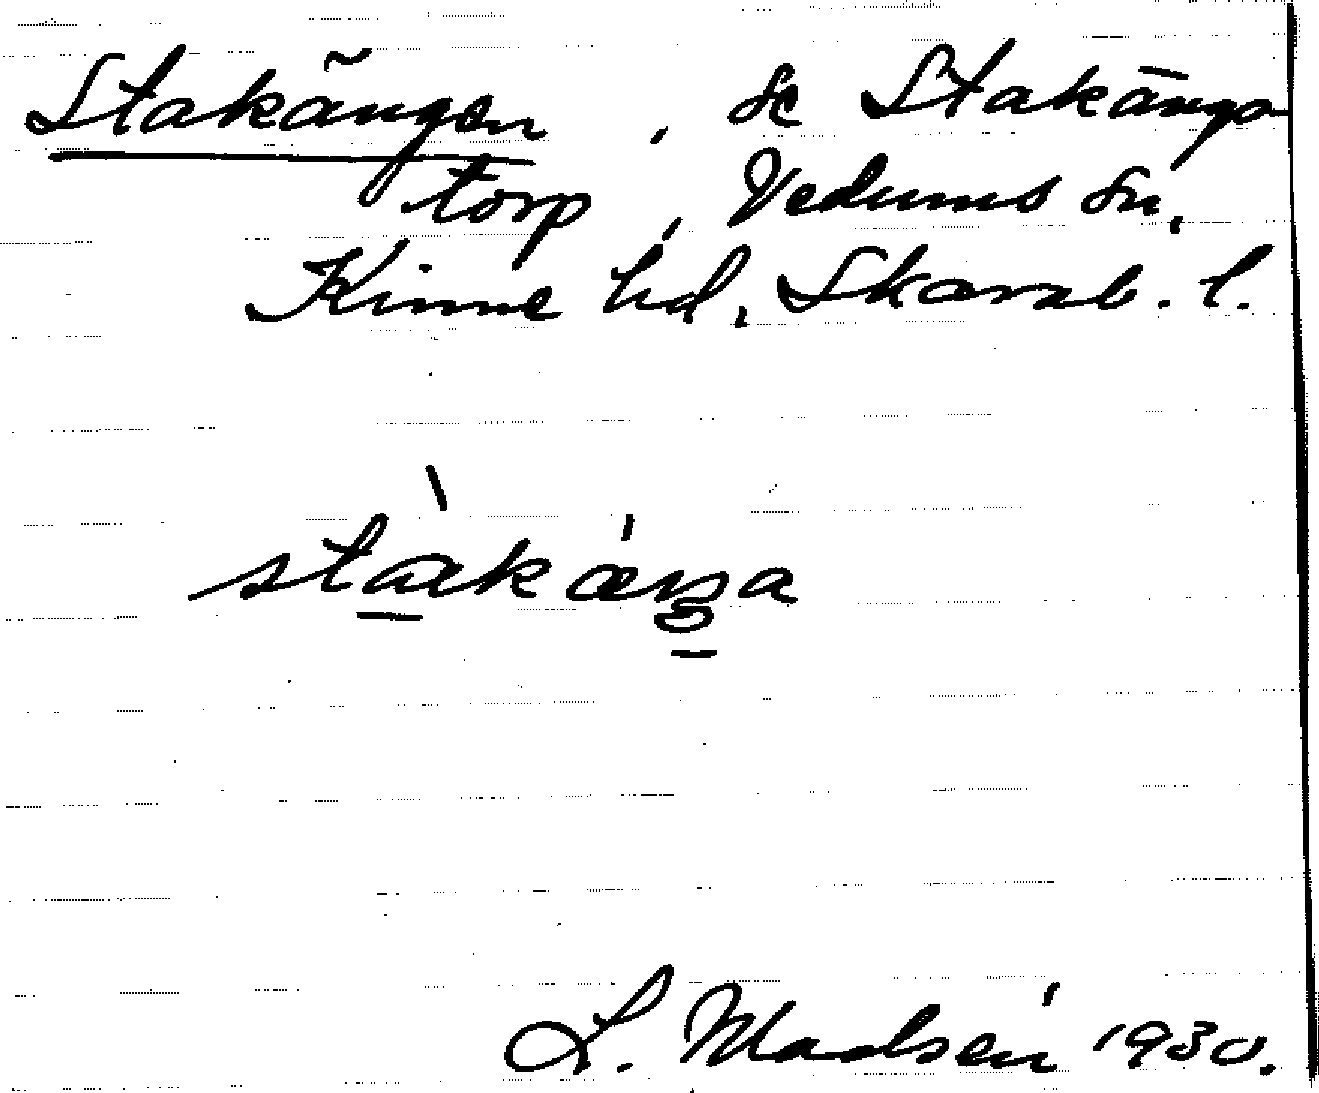 Stakängen, se Stakänga
torp, Vedums sn,
Kinne hd, Skarab. l.
stàkæ̀ŋa
L. Madsén 1930.